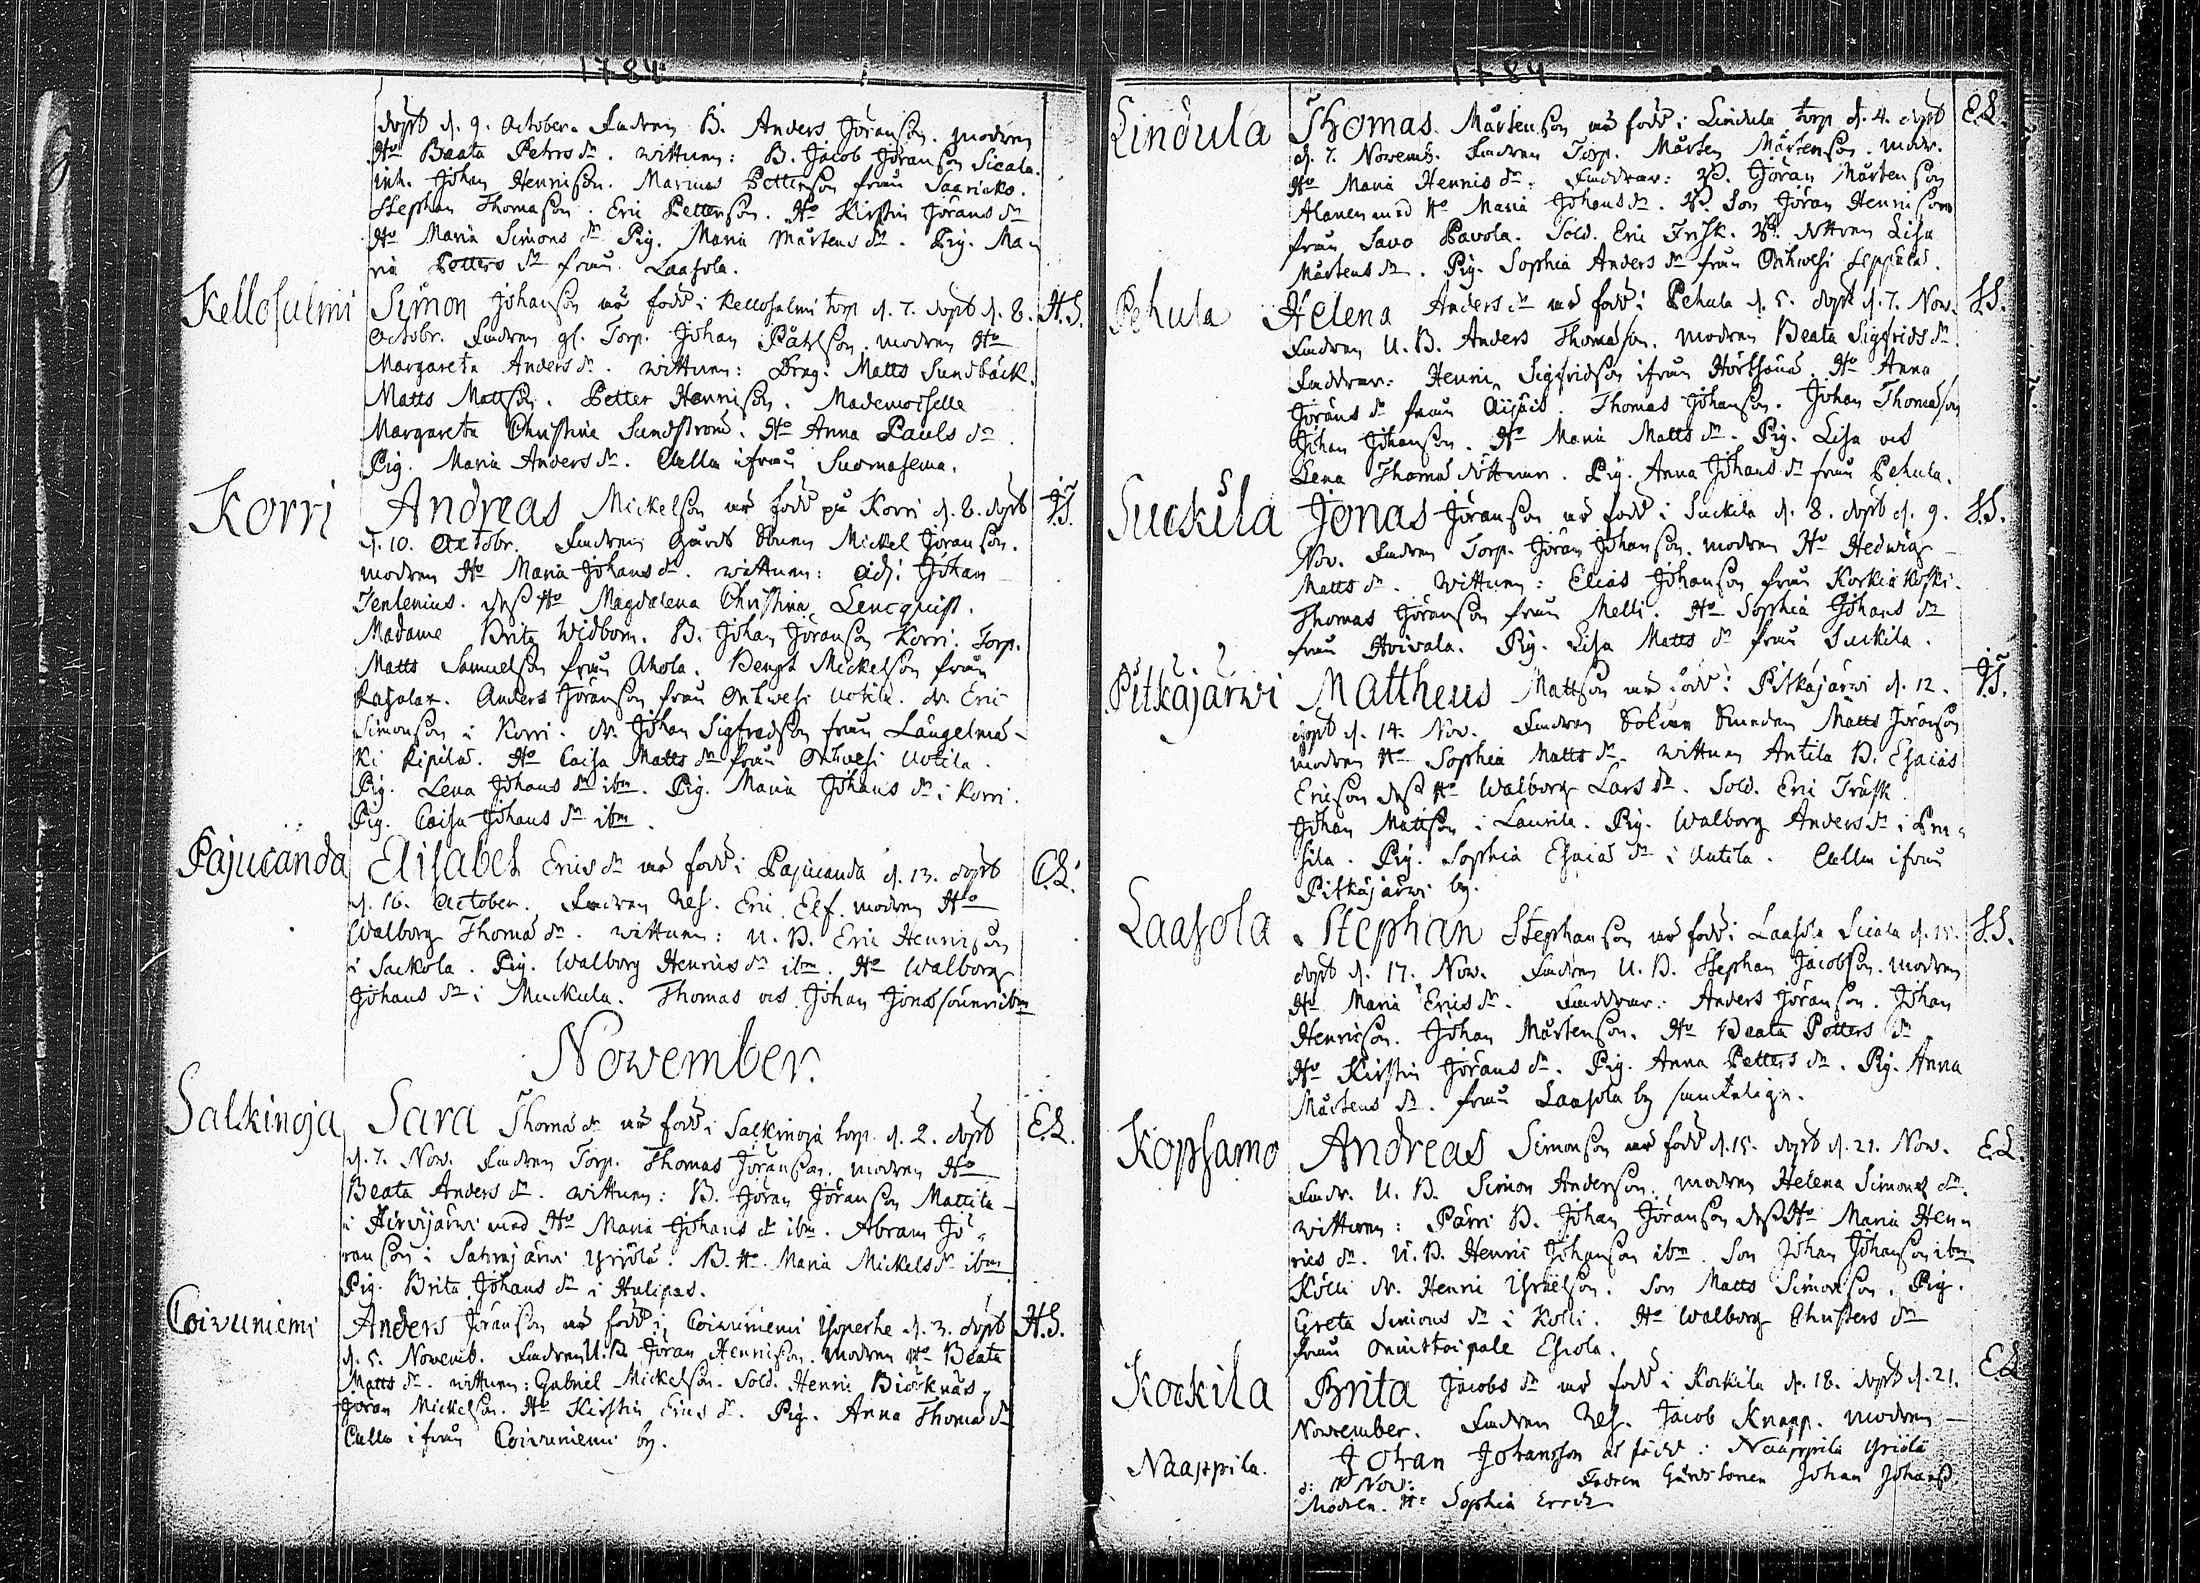 1784
döpt d. 9. October. Fadren B. Anders Jöranson. modren
Ho Beata Petters dr. wittnen: B. Jacob Jöranson Sicala.
inh. Johan Henricson. Marcus Petterson från Saarioko.
Stephan Thomason. Eric Petterson. Ho Kirstin Jörans dr
Ho Maria Simons dr Pig. Maria Mårtens dr. Pig. Ma-
ria Petters dr från Laasola.
Kellosulmi Simon Johanson är född i Kellosalmi torp d. 7. döpt d. 8. H.S.
Octobr. Fadren gl. Torp. Johan Påhlson. modren Ho
Margareta Anders dr. wittnen: Drag. Matts Sundbäck.
Matts Mattson. Petter Hennrison. Mademoiselle
Margareta Christina Sundström. Ho Anna Pauls dr.
Pig. Maria Anders dr. alla ifrån Suomasema.
Korri Andreas Mickelson är född på Korri d. 8. döpt J.T.
d. 10. Octobr. Fadren Gårds Sonen Mickel Jöranson.
modren Ho Maria Johans dr. wittnen: adj. Johan
Tenlenius. dess Ho Magdalena Christina Lencquist.
Madame Brita Widbom. B. Johan Jöranson Korri. Torp.
Matts Samuelson från Ahola. Bengt Mickelson från
Rasalax. Anders Jöranson från Onkwesi Uotila. dr. Eric
Simonson i Korri. dr. Johan Sigfredson från Längelmä-
ki Pipilä. Ho Caisa Matts dr från Onkwesi Uotila.
Pig. Lena Johans dr ibm. Pig. Maria Johans dr i Korri.
Pig. Caisa Johans dr ibm.
Pajucanda Elisabet Erics dr är född i Pajucanda d. 13. döpt E.L.
d. 16. October. Fadren Res. Eric Elf. modren Ho
Walborg Thoma dr. wittnen: U. B. Eric Henricson
i Sackola. Pig. Walborg Henrics dr ibm. Ho Walborg
Johans dr i Muckula. Thomas och Johan Jonæ söner ibm
November.
Salkinoja Sara Thomæ dr är född i Salkinoja torp d. 2. döpt E.L.
d. 7. Nov. Fadren Torp. Thomas Jöranson. modren Ho
Beata Anders dr. wittnen: B. Jöran Jöranson Mattila
i Hirvijärwi med Ho Maria Johans dr ibm. Abram Jö-
ranson i Sahrajärwi Yrjölä. B. Ho Maria Mickels dr ibm
Pig. Brita Johans dr i Hulipas.
Coivuniemi Anders Jöranson är född i Coivuniemi Ysperhe d. 3. döpt H.S.
d. 5. Novemb. Fadren U. B. Jöran Henrison. modren Ho Beata
Matts dr. wittnen: Gabriel Mickelson. Sold. Henric Biörknäs.
Jöran Mickelson. Ho Kirstin Erics dr. Pig. Anna Thomæ dr
Calla ifrån Coivuniemi by.
1784
Lindula Thomas Mårtenson är född i Lindula torp d. 4. döpt E.L.
d. 7. Novemb. Fadren Torp. Mårten Mårtenson. modr.
Ho Maria Hennis dr. Faddrar: B. Jöran Mårtenson
Alanen med Ho Maria Johans dr. B. Son Jöran Henrison
från Savo Pavola. Sold. Eric Frisk. B. dottren Lisa
Mårtens dr. Pig. Sophia Anders dr från Onkwesi Seppälä.
Pehula Helena Anders dr är född i Pehula d. 5. döpt d. 7. Nov. S.S.
Fadren U. B. Anders Thomason. modren Beata Sigfrids dr.
Faddrar: Henric Sigfridson ifrån Hörtsänä. Ho Anna
Jörans dr från Äijälä. Thomas Johanson. Johan Thomason
Johan Johanson. Ho Maria Matts dr. Pig. Lisa och
Lena Thomæ döttrar. Pig. Anna Johans dr från Pehula.
Suckila Jonas Jöranson är född i Suckila d. 8. döpt d. 9. S.S.
Nov. Fadren Torp. Jöran Johanson. modren Ho Hedwig
Matts dr. wittnen: Elias Johanson från Korkiakoski.
Thomas Jöranson från Melli. Ho Sophia Johans dr
från Hoivala. Pig. Lisa Matts dr från Suckila.
Pitkäjärwi Mattheus Mattson är född i Pitkäjärwi d. 12. J.T.
döpt d. 14. Nov. Fadren Sokne Smeden Matts Jöranson
modren Ho Sophia Matts dr. wittnen Antila B. Esaias
Ericson dess Ho Walborg Lars dr. Sold. Eric Träsk.
Johan Mattson i Laurila. Pig. Walborg Anders dr i Pru-
sila. Pig. Sophia Esaiæ dr i Antila. Calla ifrån
Pitkäjärwi by.
Laasola Stephan Stephanson är född i Laasola Sicala d. 15. S.S.
döpt d. 17. Nov. Fadren U. B. Stephan Jacobson. modren
Ho Maria Erics dr. Faddrar: Anders Jöranson. Johan
Henricson. Johan Mårtenson. Ho Beata Petters dr
Ho Kirstin Jörans dr. Pig. Anna Petters dr. Pig. Anna
Mårtens dr. från Laasola by samteligen.
Kopsamo Andreas Simonson är född d. 15. döpt d. 21. Nov. E.L.
Fadr. U. B. Simon Anderson. modren Helena Simons dr.
wittnen: Pärri B. Johan Jöranson dess Ho Maria Hen-
rics dr. U. B. Henric Johanson ibm. Son Johan Johanson ibm
Kölli dr. Henric Ysraelson. Son Matts Simonson. Pig.
Greta Simons dr i Kolli. Ho Walborg Christers dr
från Onnistaipale Eskola.
Kockila Brita Jacobs dr är född i Kockila d. 18. döpt d. 21. E.L.
November. Fadren Res. Jacob Knapp. modren —
Naappila. Johan Johansson är född i Naappila Yriölä
d: 18 Nov: Fadren Gårdssonen Johan Johans
Modren. Ho Sophia Ericd.